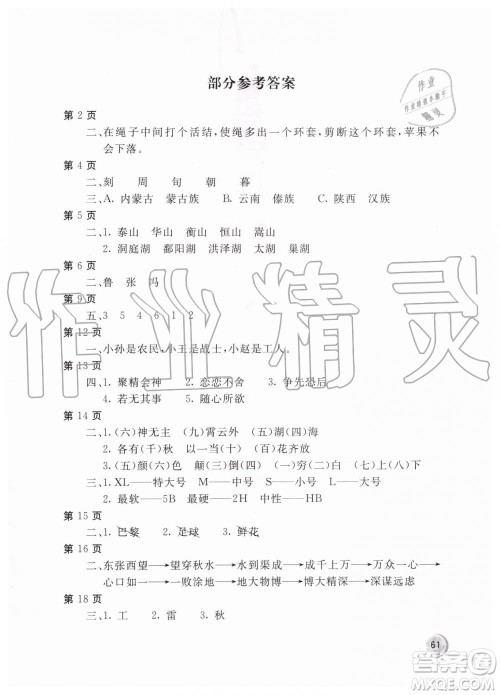 部分参考答案
作业
作业检查小助手
精灵
第 2 页
二、在绳子中间打个活结，使绳多出一个环套，剪断这个环套，苹果不
会下落。
第 4 页
二、刻 周 旬 朝 暮
三、A. 内蒙古 蒙古族 B. 云南 傣族 C. 陕西 汉族
第 5 页
二、1. 泰山 华山 衡山 恒山 嵩山
2. 洞庭湖 鄱阳湖 洪泽湖 太湖 巢湖
第 6 页
二、鲁 张 冯
第 9 页
五、3 5 4 6 1 2
第 12 页
二、小孙是农民，小王是战士，小赵是工人。
第 13 页
四、1. 聚精会神 2. 恋恋不舍 3. 争先恐后
4. 若无其事 5. 随心所欲
第 14 页
二、1. (六)神无主 (九)霄云外 (五)湖(四)海
2. 各有(千)秋 以一当(十) (百)花齐放
3. (五)颜(六)色 颠(三)倒(四) (七)上(八)下
三、1. XL——特大号 L——大号 M——中号 S——小号
2. 最软——5B 最硬——2H 最浓——6B
第 15 页
二、1. 巴黎 2. 足球 3. 鲜花
第 16 页
二、东张西望→望穿秋水→水到渠成→成千上万→万众一心→
心口如一→一败涂地→地大物博→博大精深→深谋远虑
第 18 页
三、1. 工 2. 雷 3. 秋
作业精灵
61